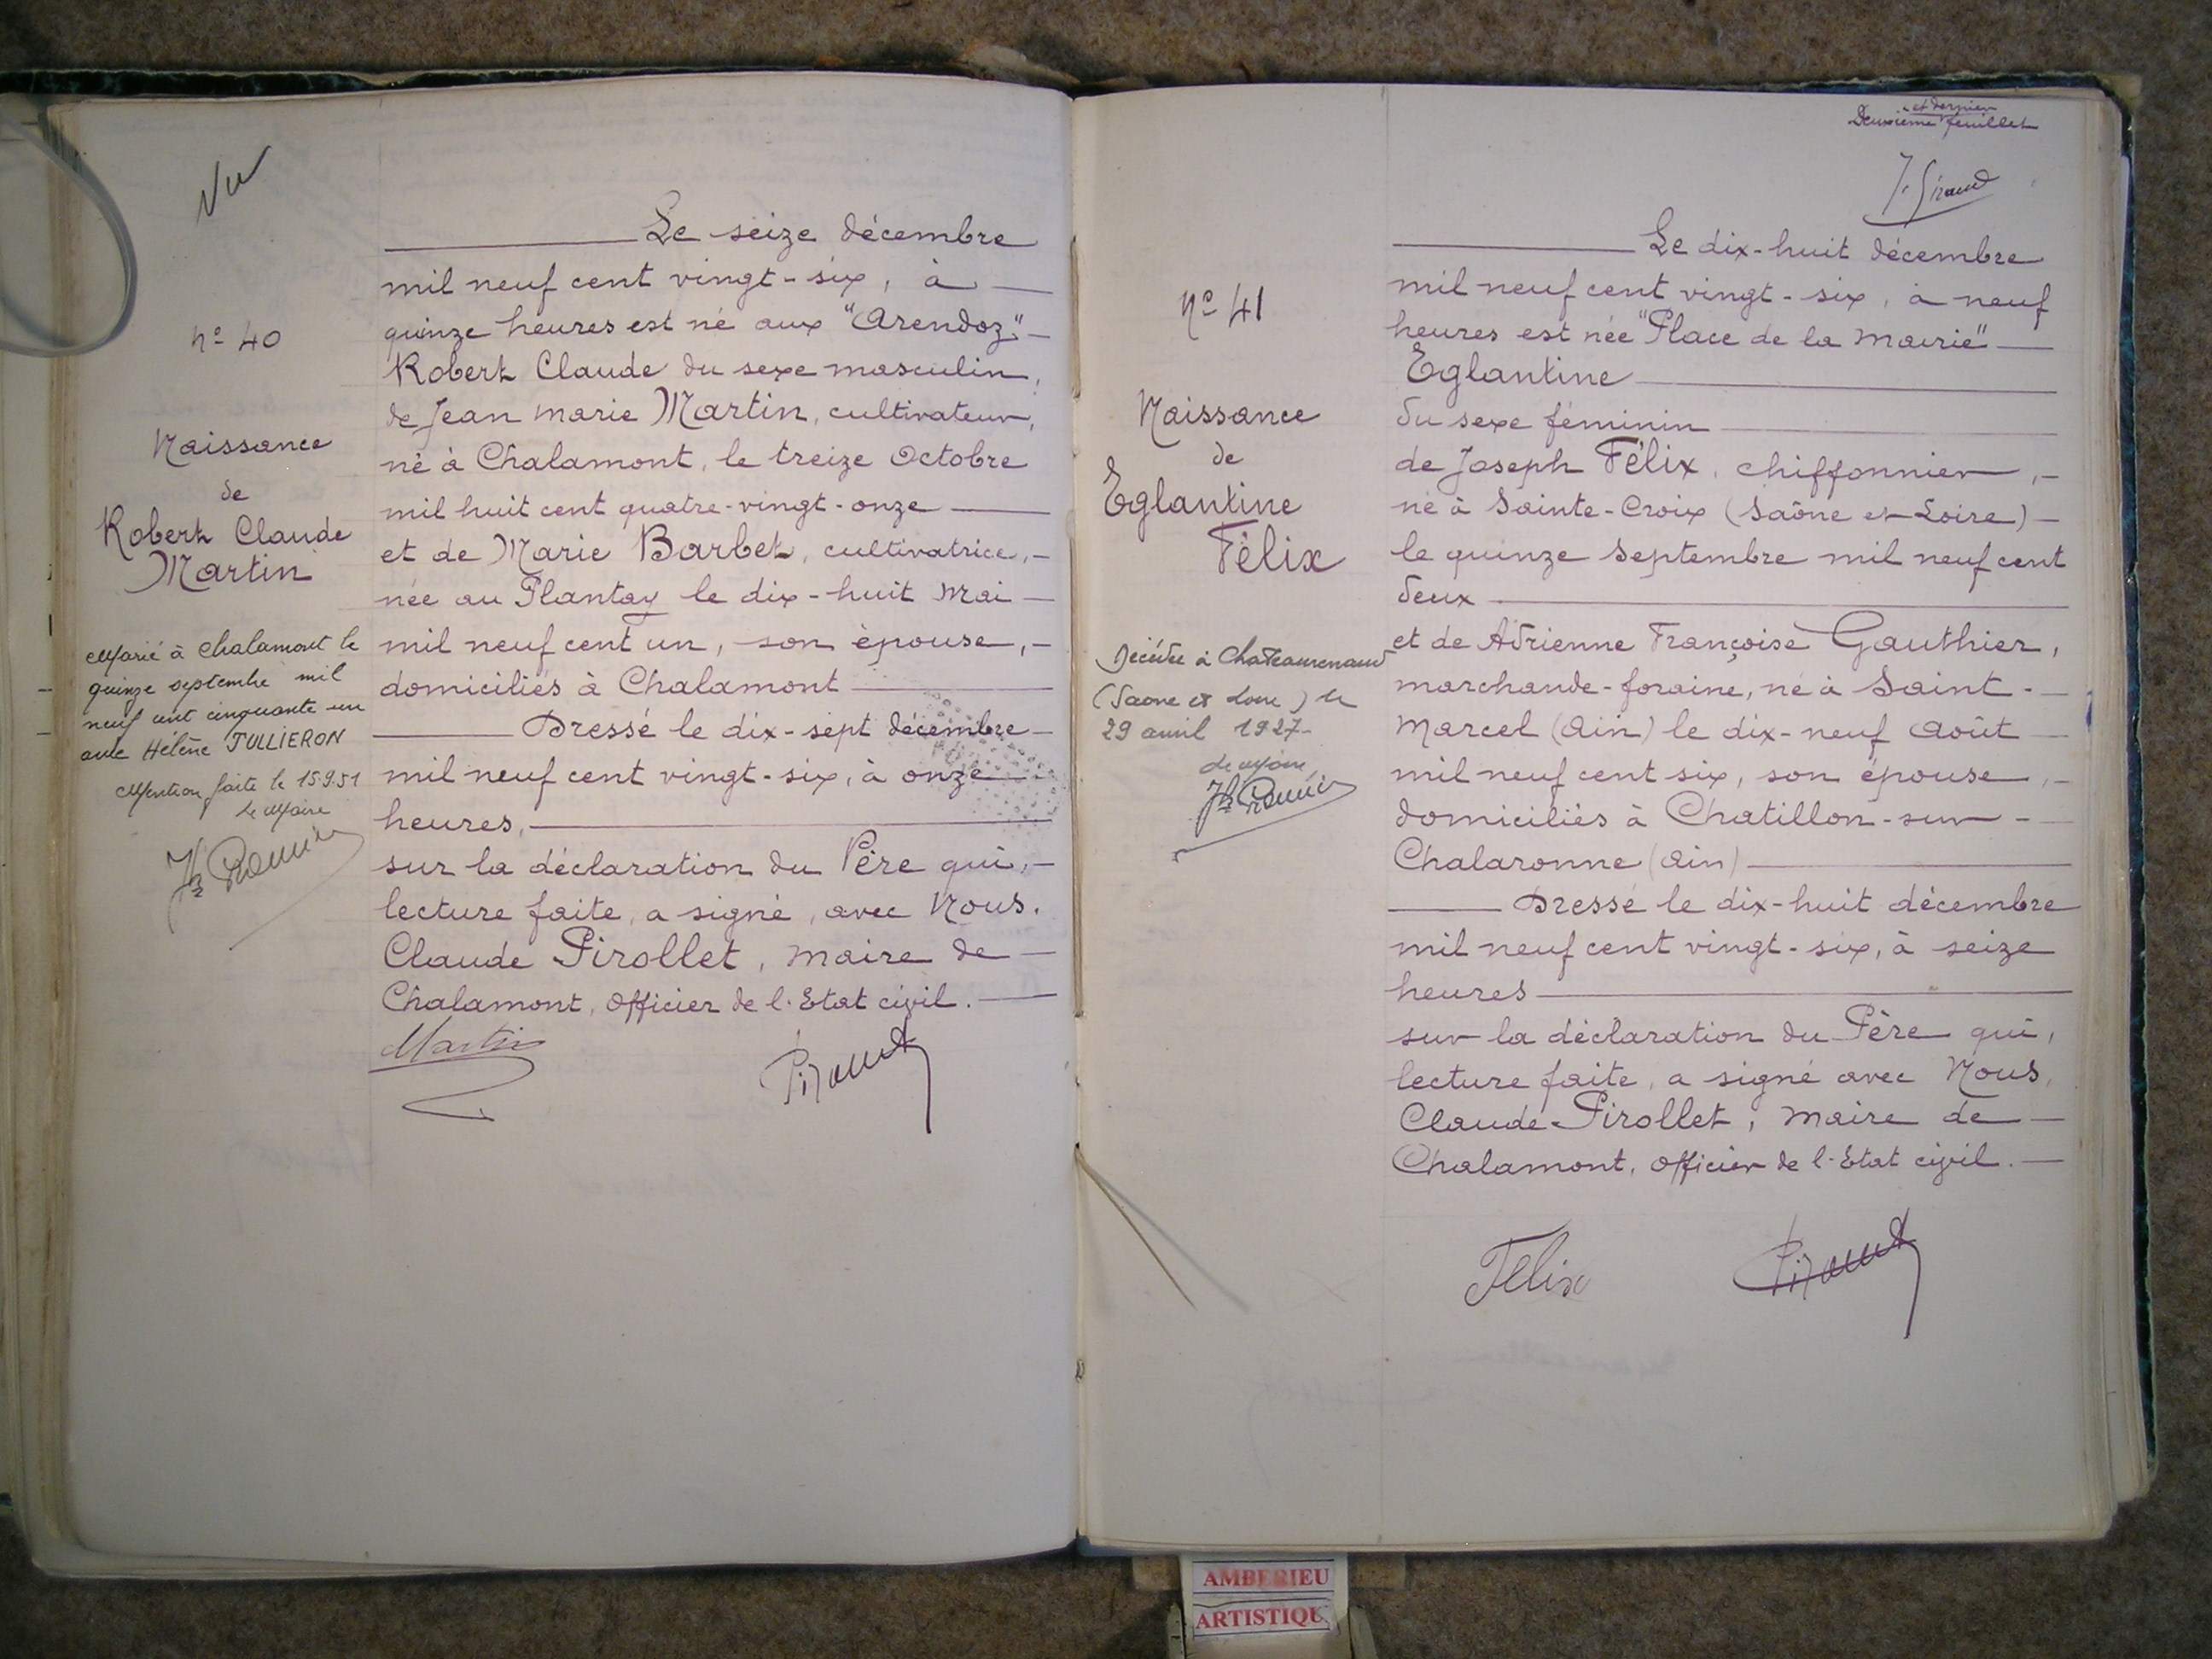 Vu
n° 40
Naissance
de
Robert Claude
Martin
Marié à Chalamont le
quinze septembre mil
neuf cent cinquante un
avec Hélène JULLIERON
Mention faite le 15.9.51
Le Maire
Le seize décembre
mil neuf cent vingt-six, à
quinze heures est né aux "Arendoz"
Robert Claude du sexe masculin,
de Jean Marie Martin, cultivateur,
né à Chalamont, le treize Octobre
mil huit cent quatre-vingt-onze
et de Marie Barbet, cultivatrice,
née au Plantay le dix-huit Mai
mil neuf cent un, son épouse,
domiciliés à Chalamont
Dressé le dix-sept décembre
mil neuf cent vingt-six, à onze
heures,
sur la déclaration du Père qui,
lecture faite, a signé, avec Nous.
Claude Pirollet, Maire de
Chalamont, Officier de l'Etat civil.
Martin
et dernier
Deuxième feuillet
N° 41
Naissance
de
Eglantine
Félix
Décédée à Chateaurenaud
(Saone et Loire) le
29 avril 1927
Le Maire
Le dix-huit décembre
mil neuf cent vingt-six, à neuf
heures est née "Place de la Mairie"
Eglantine
du sexe féminin
de Joseph Félix, chiffonnier,
né à Sainte-Croix (Saône et Loire)
le quinze Septembre mil neuf cent
deux
et de Adrienne Françoise Gauthier,
marchande-foraine, né à Saint-
Marcel (Ain) le dix-neuf Août
mil neuf cent six, son épouse,
domiciliés à Chatillon-sur-
Chalaronne (Ain)
Dressé le dix-huit décembre
mil neuf cent vingt-six, à seize
heures
sur la déclaration du Père qui,
lecture faite, a signé avec Nous,
Claude Pirollet, Maire de
Chalamont, Officier de l'Etat civil.
Félix
AMBERIEU
ARTISTIQU